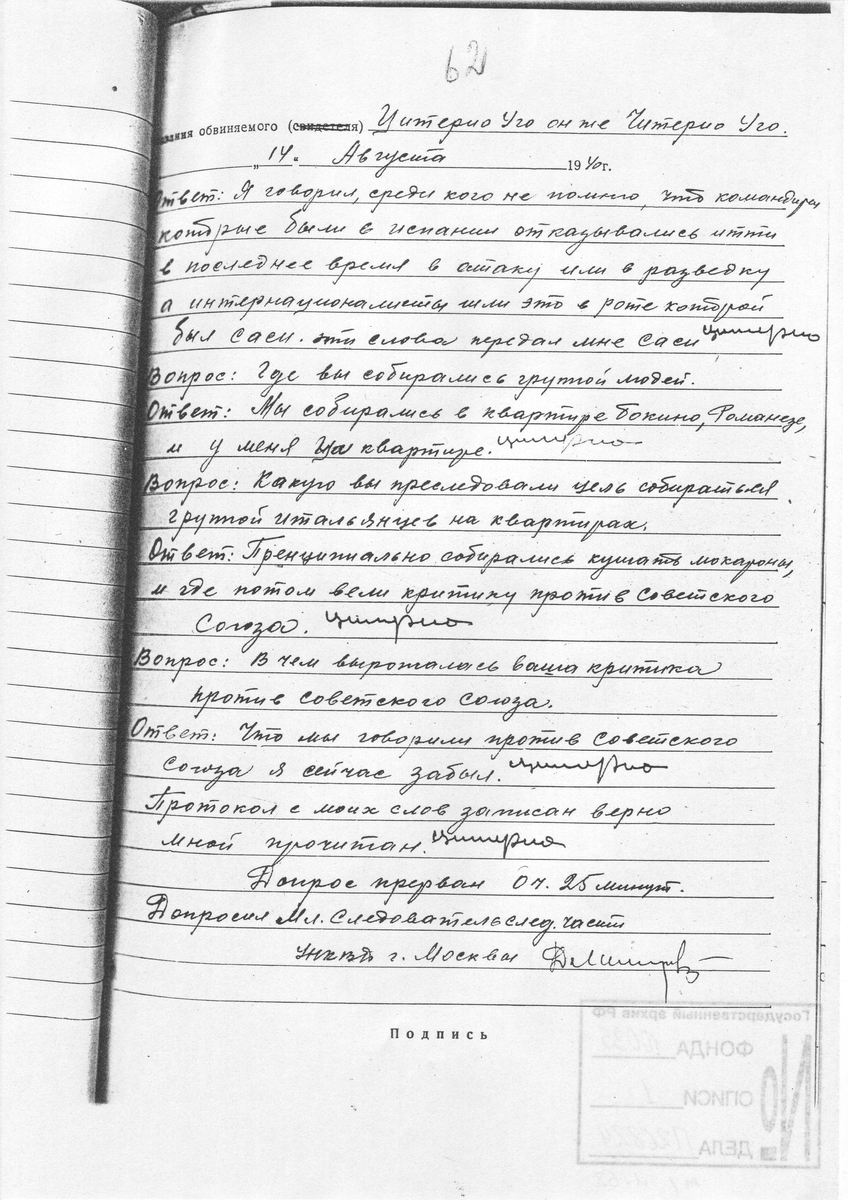 62
зания обвиняемого (свидетеля) Цитерио Уго он же Читерио Уго.
„14„ Августа 1940г.
Ответ: Я говорил, среди кого не помню, что командиры
которые были в испании отказывались итти
в последнее время в атаку или в разведку
а интернационалисты шли это в роте которой
был саси. эти слова передал мне саси Цитерио
Вопрос: Где вы собирались группой людей.
Ответ: Мы собирались в квартире Гокино, Романезе,
и у меня на квартире. Цитерио
Вопрос: Какую вы преследовали цель собираться
группой итальянцев на квартирах.
Ответ: Пренципиально собирались кушать мокароны,
и где потом вели критику против советского
Союза. Цитерио
Вопрос: В чем вырожалась ваша критика
против советского союза.
Ответ: Что мы говорили против советского
союза я сейчас забыл. Цитерио
Протокол с моих слов записан верно
мной прочитан. Цитерио
Допрос прерван 0 ч. 25 минут.
Допросил Мл. Следователь след. части
УНКВД г. Москвы
Подпись
Государственный архив РФ
№
ФОНДА
ОПИСИ 1
ДЕЛА